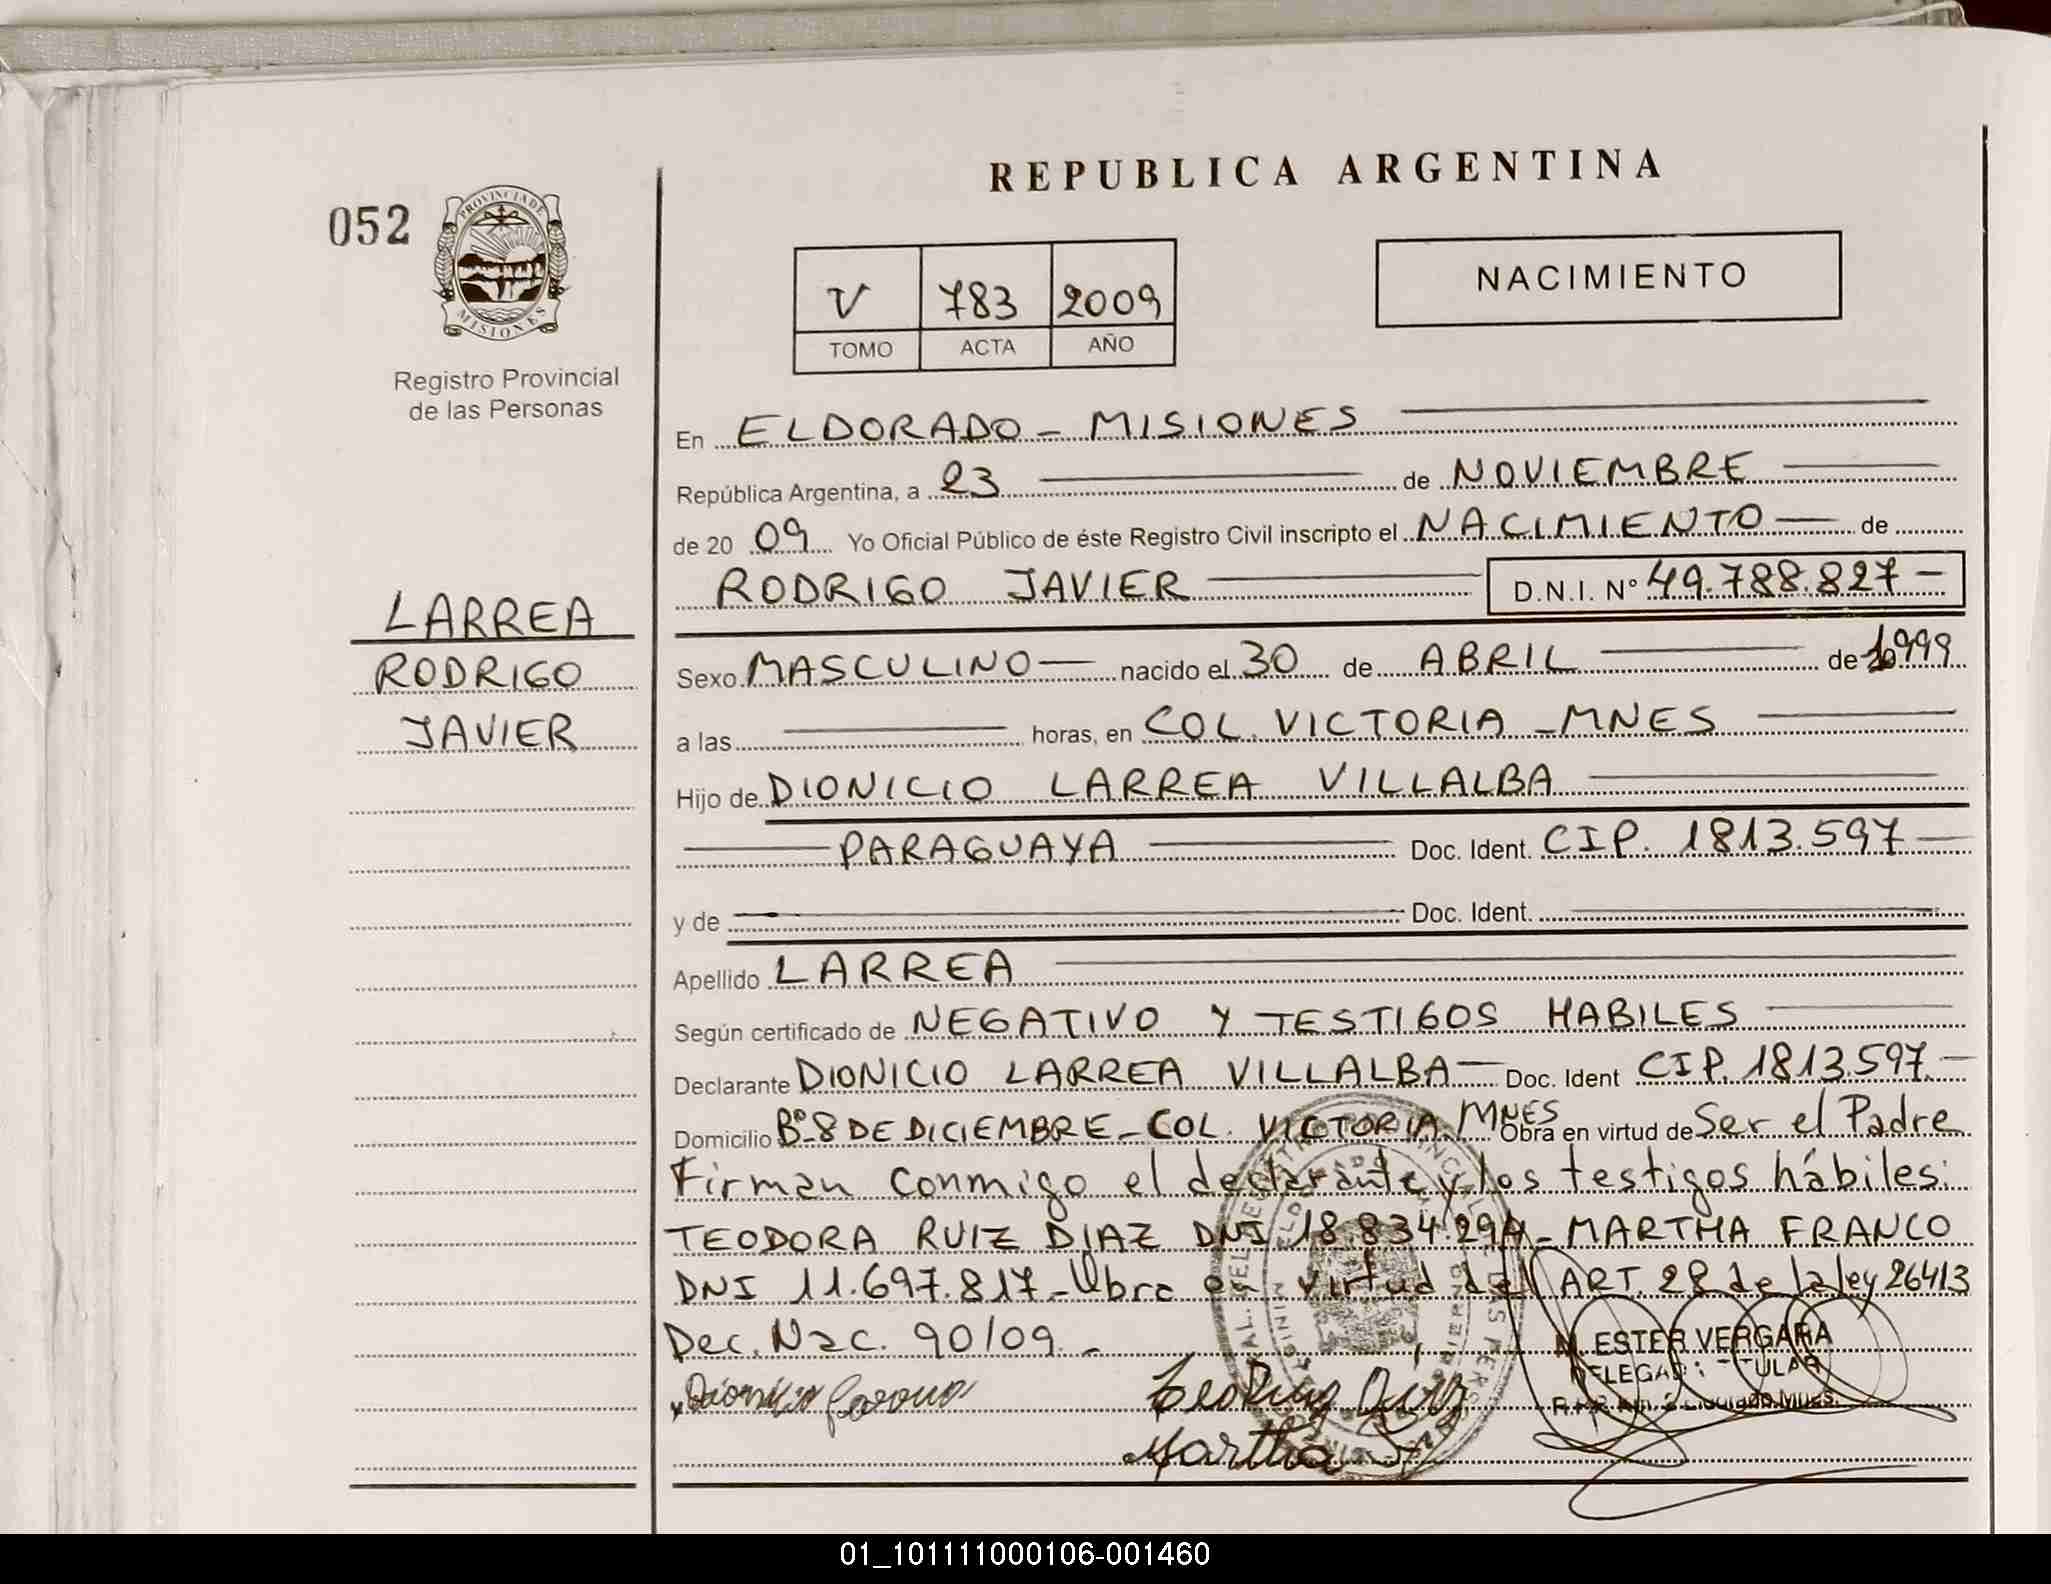 REPUBLICA ARGENTINA
052
PROVINCIA DE
MISIONES
Registro Provincial
de las Personas
V 783 2009
TOMO ACTA AÑO
NACIMIENTO
LARREA
RODRIGO
JAVIER
En ELDORADO - MISIONES
República Argentina, a 23 de NOVIEMBRE
de 20 09 Yo Oficial Público de éste Registro Civil inscripto el NACIMIENTO de
RODRIGO JAVIER D.N.I. Nº 49.788.827-
Sexo MASCULINO nacido el 30 de ABRIL de 1999
a las horas, en COL. VICTORIA - MNES
Hijo de DIONICIO LARREA VILLALBA
PARAGUAYA Doc. Ident. CIP. 1813.597-
y de Doc. Ident.
Apellido LARREA
Según certificado de NEGATIVO Y TESTIGOS HABILES
Declarante DIONICIO LARREA VILLALBA Doc. Ident CIP. 1813.597.-
Domicilio Bº 8 DE DICIEMBRE - COL. VICTORIA. MNES Obra en virtud de Ser el Padre
Firman conmigo el declarante y los testigos hábiles:
TEODORA RUIZ DIAZ DNI 18.834.294 - MARTHA FRANCO
DNI 11.697.817 - Obra en virtud del ART. 28 de la ley 26413
Dec. Nac. 90/09.-
M. ESTER VERGARA
DELEGADA TITULAR
Dionicio
Martha
01_101111000106-001460